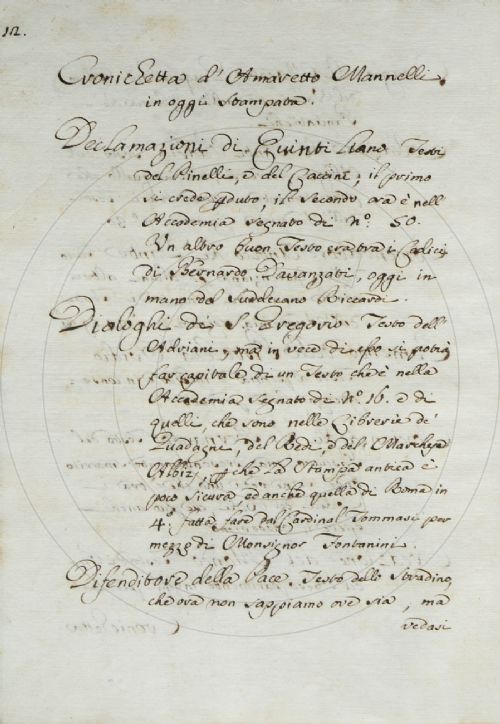 12.
Cronichetta d'Amaretto Mannelli
in oggi Stampata.
Declamazioni di Quintiliano Testi
del Pinelli, e del Caccini; il primo
si crede pduto; il Secondo ora è nell'
Accademia segnato di N.º 50.
Un altro buon Testo era tra i Codici
di Bernardo Davanzati, oggi in
mano del Suddecano Riccardi.
Dialoghi di S. Gregorio Testo dell'
Adriani, ma in vece di esso si potrà
far capitale di un Testo che è nella
Accademia segnato di N.º 16. e di
quelli, che sono nelle Librerie de'
Guadagni, del Redi, e del Marchese
Albizi, che la Stampa antica è
poco sicura ed anche quella di Roma in
4.º fatta fare dal Cardinal Tommasi per
mezzo di Monsignor Fontanini.
Difenditore della Pace. Testo dello Stradino,
che ora non sappiamo ove sia, ma
vedasi